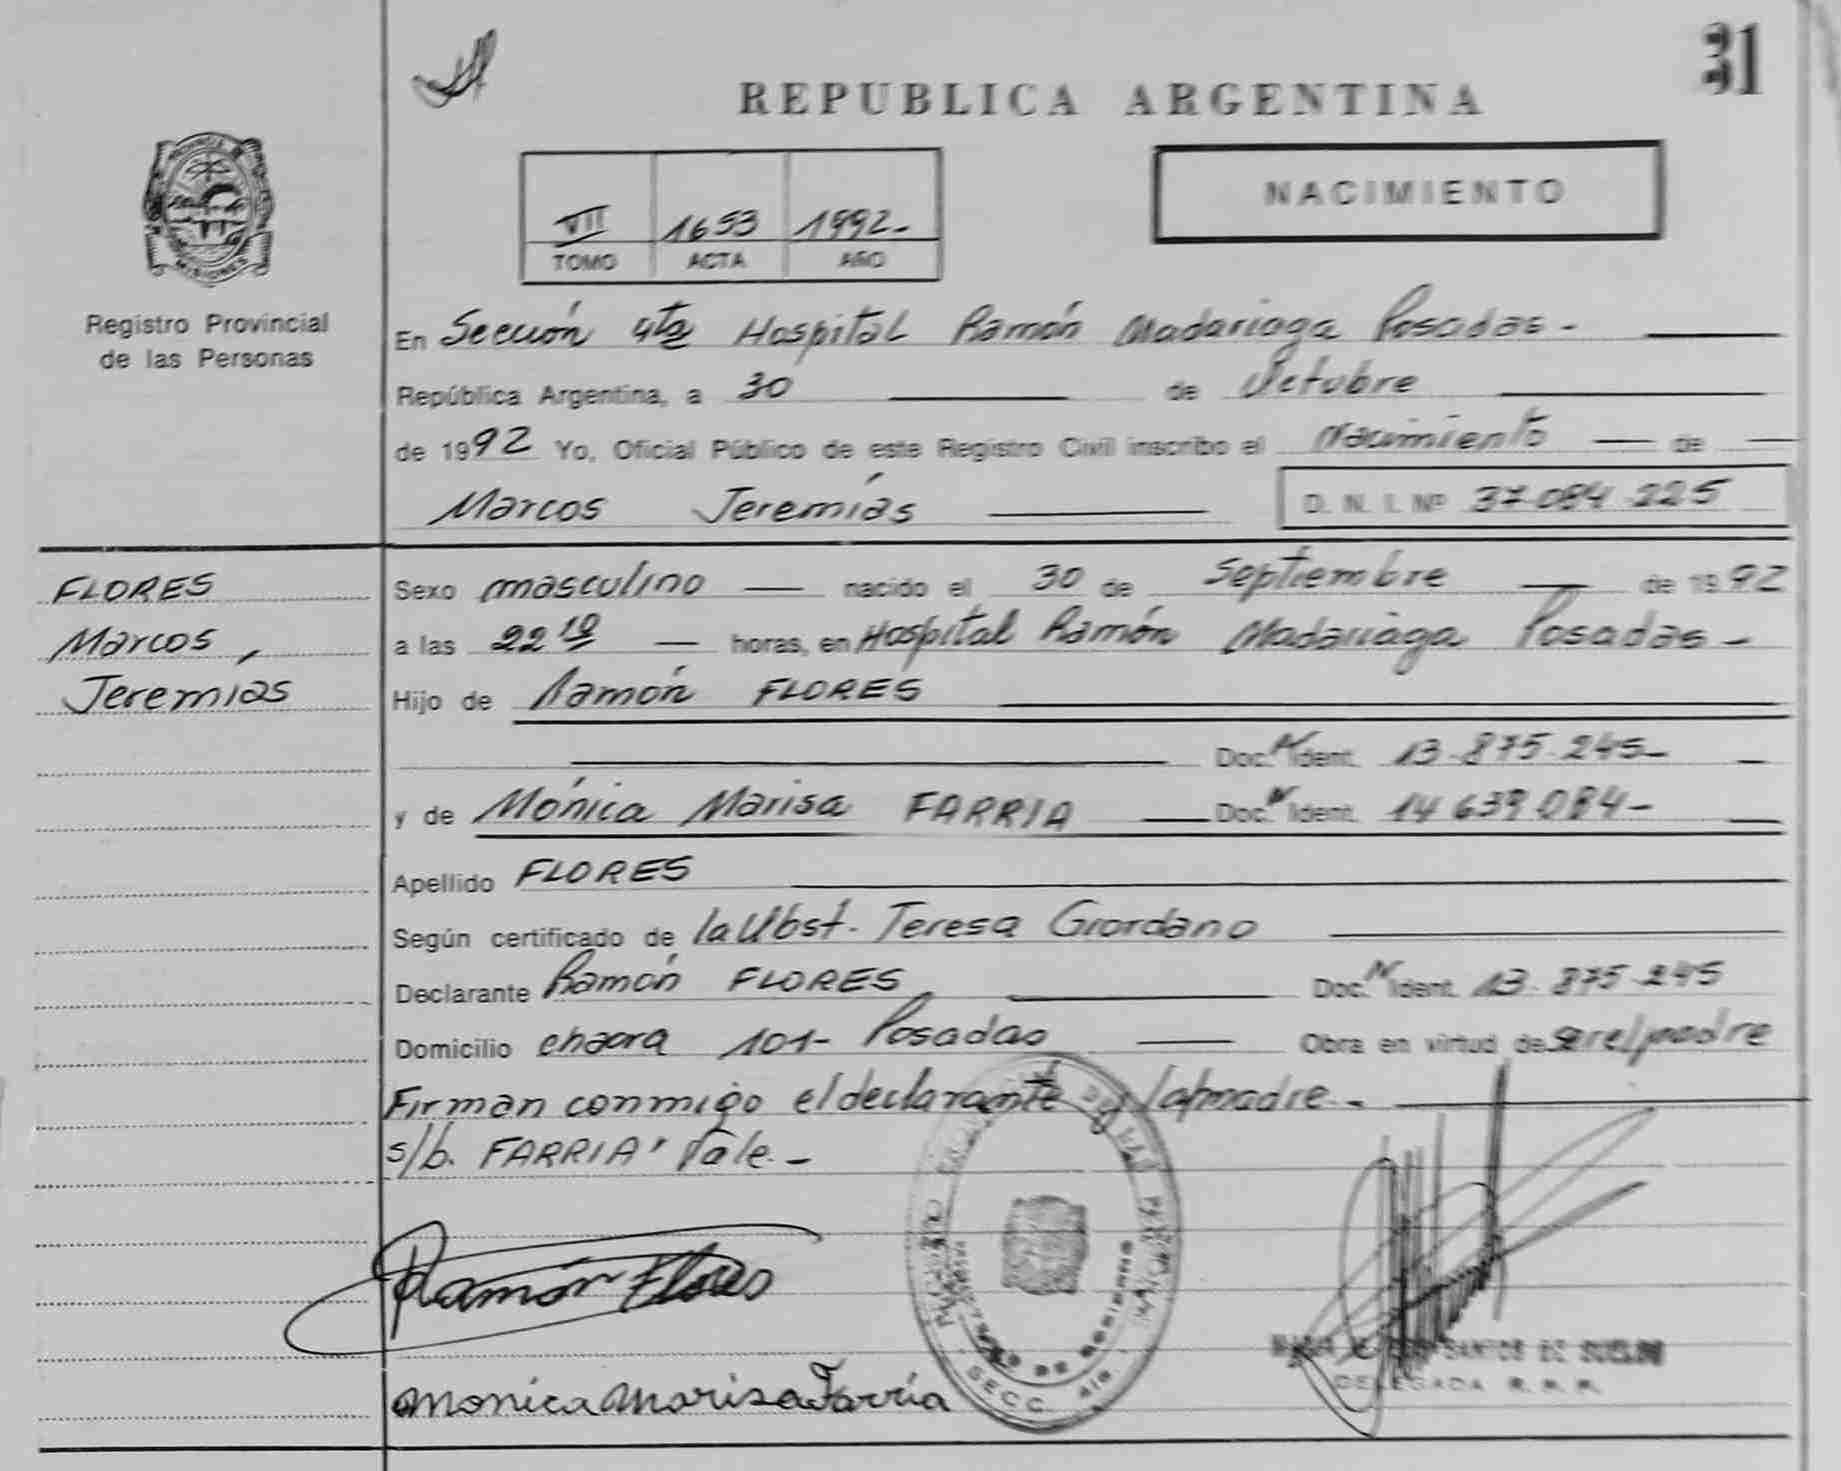 31
REPUBLICA ARGENTINA
NACIMIENTO
VII 1653 1992-
TOMO ACTA AÑO
PROVINCIA DE MISIONES
Registro Provincial
de las Personas
En Sección 4ta Hospital Ramón Madariaga Posadas-
República Argentina, a 30 de Octubre
de 1992 Yo, Oficial Público de este Registro Civil inscribo el Nacimiento de
Marcos Jeremías D. N. I. Nº 37.084.225
FLORES
Marcos,
Jeremias
Sexo masculino nacido el 30 de Septiembre de 1992
a las 22 10 horas, en Hospital Ramón Madariaga Posadas-
Hijo de Ramón FLORES
Doc. N Ident. 13.875.245-
y de Mónica Marisa FARRIA Doc. N Ident. 14.639.084-
Apellido FLORES
Según certificado de la Obst. Teresa Giordano
Declarante Ramón FLORES Doc. N Ident. 13.875.245
Domicilio chacra 101- Posadas Obra en virtud de ser el padre
Firman conmigo el declarante y la madre.-
s/b. FARRIA' Vale.-
Ramón Flores
Monica Marisa Farria
DE LAS PERSONAS
DE MISIONES
SECC. 4ta
SANTOS DE
DELEGADA R. P. P.